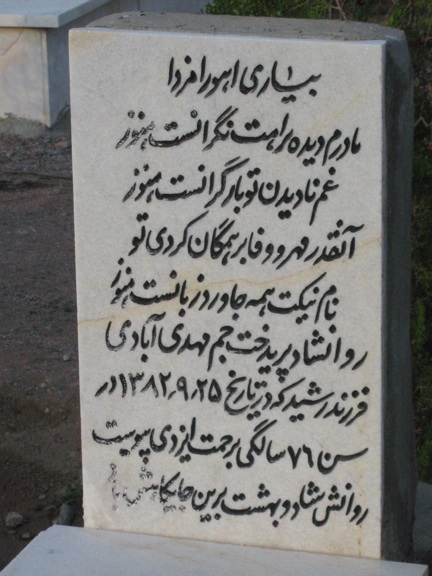 بیاری اهورامزدا
مادرم دیده براهت نگرانست هنوز
غم نادیدن تو بار گرانست هنوز
آنقدر مهر و وفا بر همگان کردی تو
نام نیکت همه جا ورد زبانست هنوز
روانشاد پریدخت جم مهدی آبادی
فرزند رشید که در تاریخ ۱۳۸۲٫۹٫۲۵ در
سن ۷۶ سالگی برحمت ایزدی پیوست
روانش شاد و بهشت برین جایگاهش باد